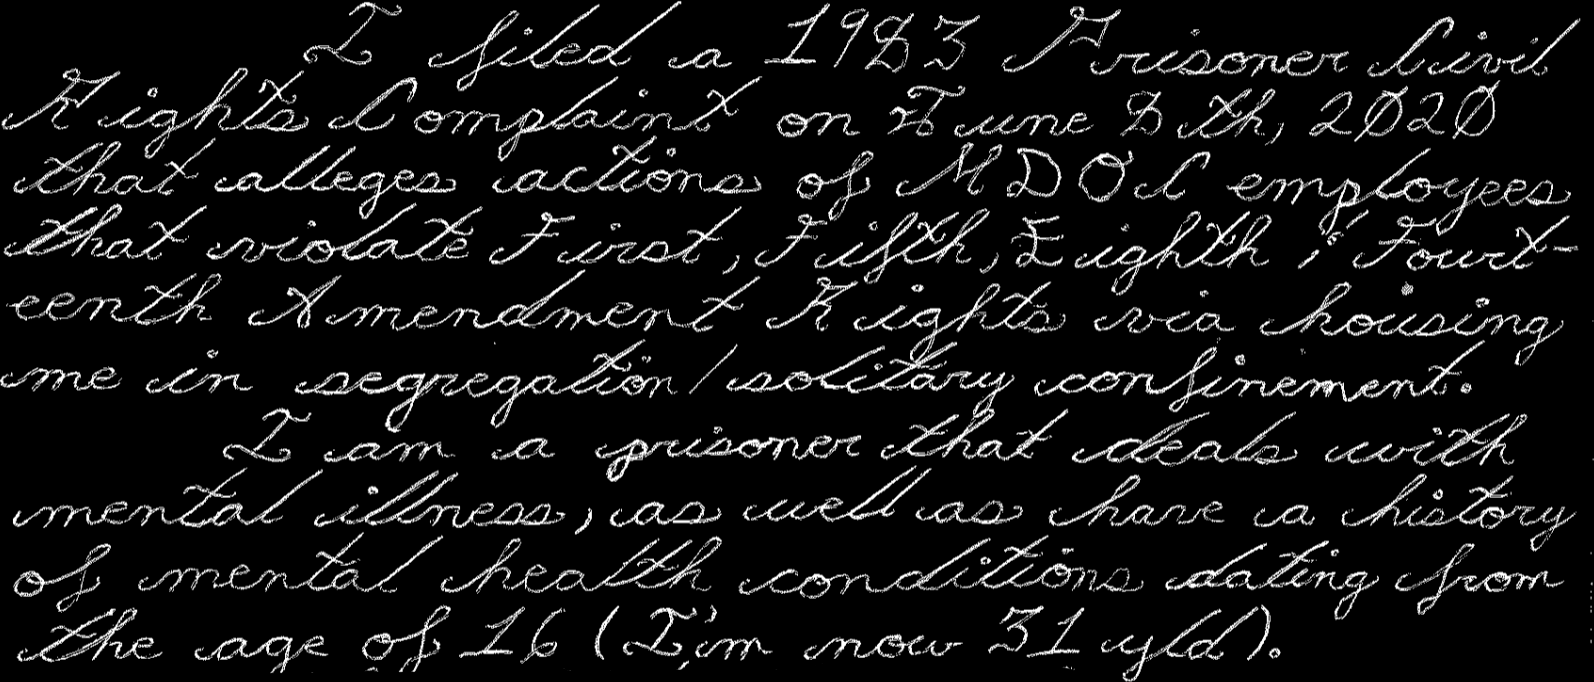 I filed a 1983 Prisoner Civil
Rights Complaint on June 8th, 2020
that alleges actions of MDOC employees
that violate First, Fifth, Eighth, & Fourt-
eenth Amendment Rights via housing
me in segregation/solitary confinement.
I am a prisoner that deals with
mental illness, as well as have a history
of mental health conditions dating from
the age of 16 (I'm now 31 y/d).